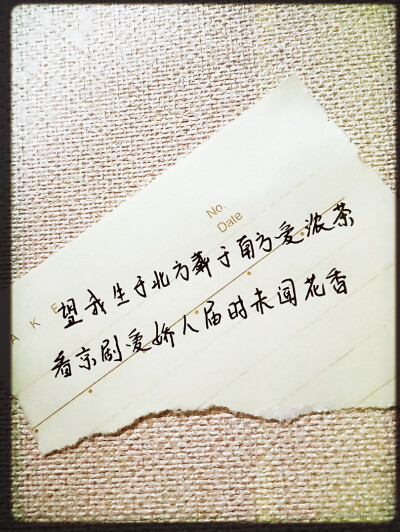 No.
Date
A K E
望我生于北方葬于南方爱浓茶
看京剧爱娇人届时未闻花香